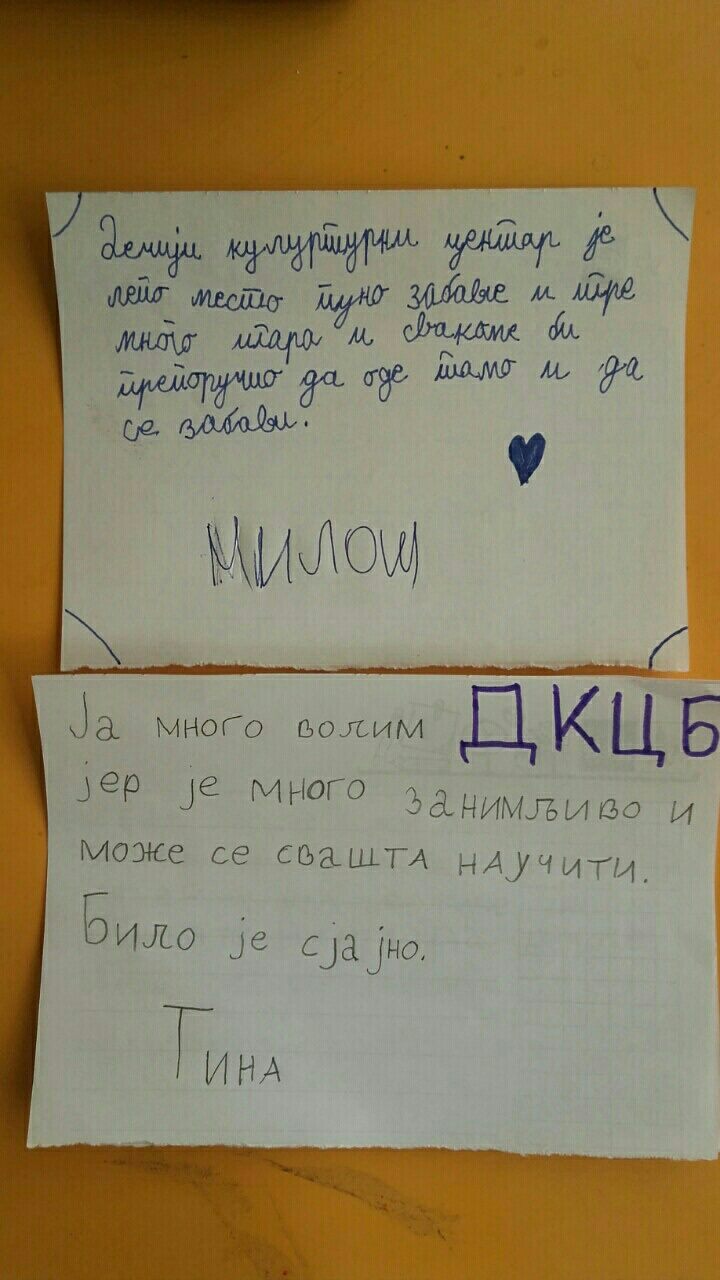 Дечији културтурни центар је
лепо место пуно забаве и игре
много играра и сваком би
препоручио да оде тамо и да
се забави.
МИЛОШ
Ја много вољим ДКЦБ
јер је много занимљиво и
може се свашта научити.
Било је сјајно.
Тина